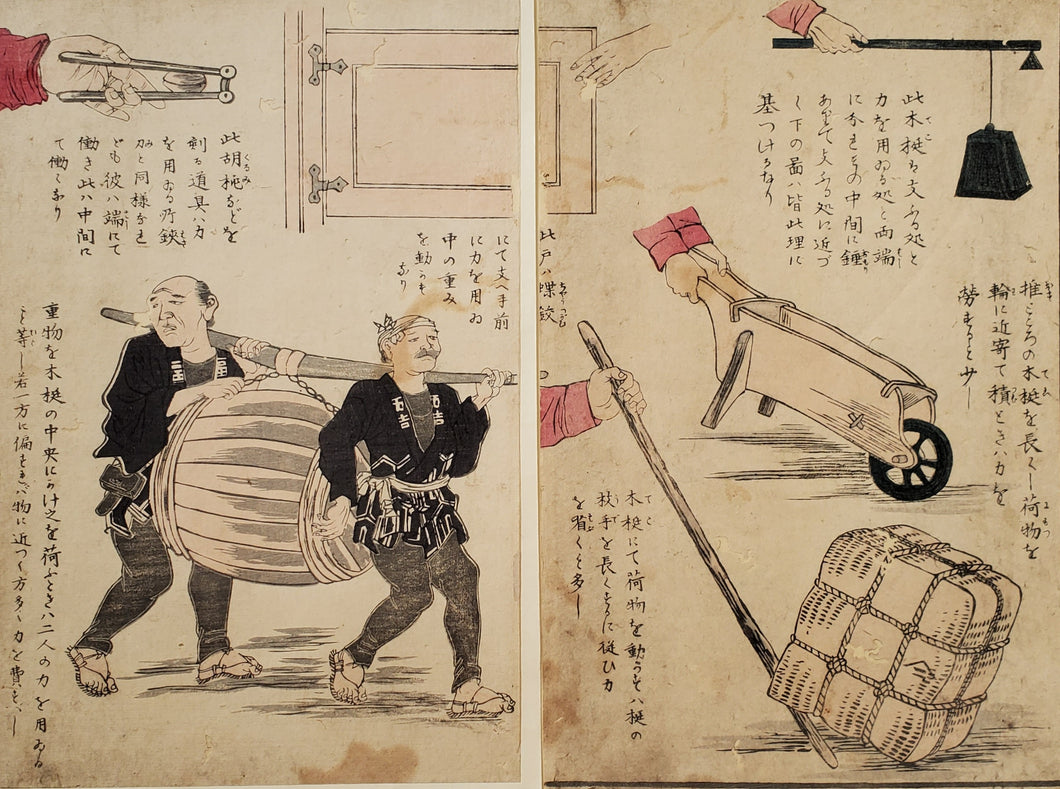 此木梃ハ支ふる処と
力を用ゐる処と両端
にありその中間に錘
ありて支ふる処に近づ
く下の図ハ皆此理に
基つけるなり
推ところの木梃を長くし荷物を
輪に近寄て積ときハ力を
労すること少し
木梃にて荷物を動かすにハ梃の
手を長くするに従ひ力
を省くこと多し
此戸ハ蝶鉸
にて支へ手前
に力を用ゐ
中の重み
を動かす
なり
此胡桃などを
割る道具ハ力
を用ゐる所鋏
刀と同様なれ
ども彼ハ端にて
働き此ハ中間に
て働くなり
重物を木梃の中央にかけ之を荷ふときハ二人の力を用ゐる
こと等し若一方に偏するときハ物に近つく方多く力を費すべし
五吉
五吉